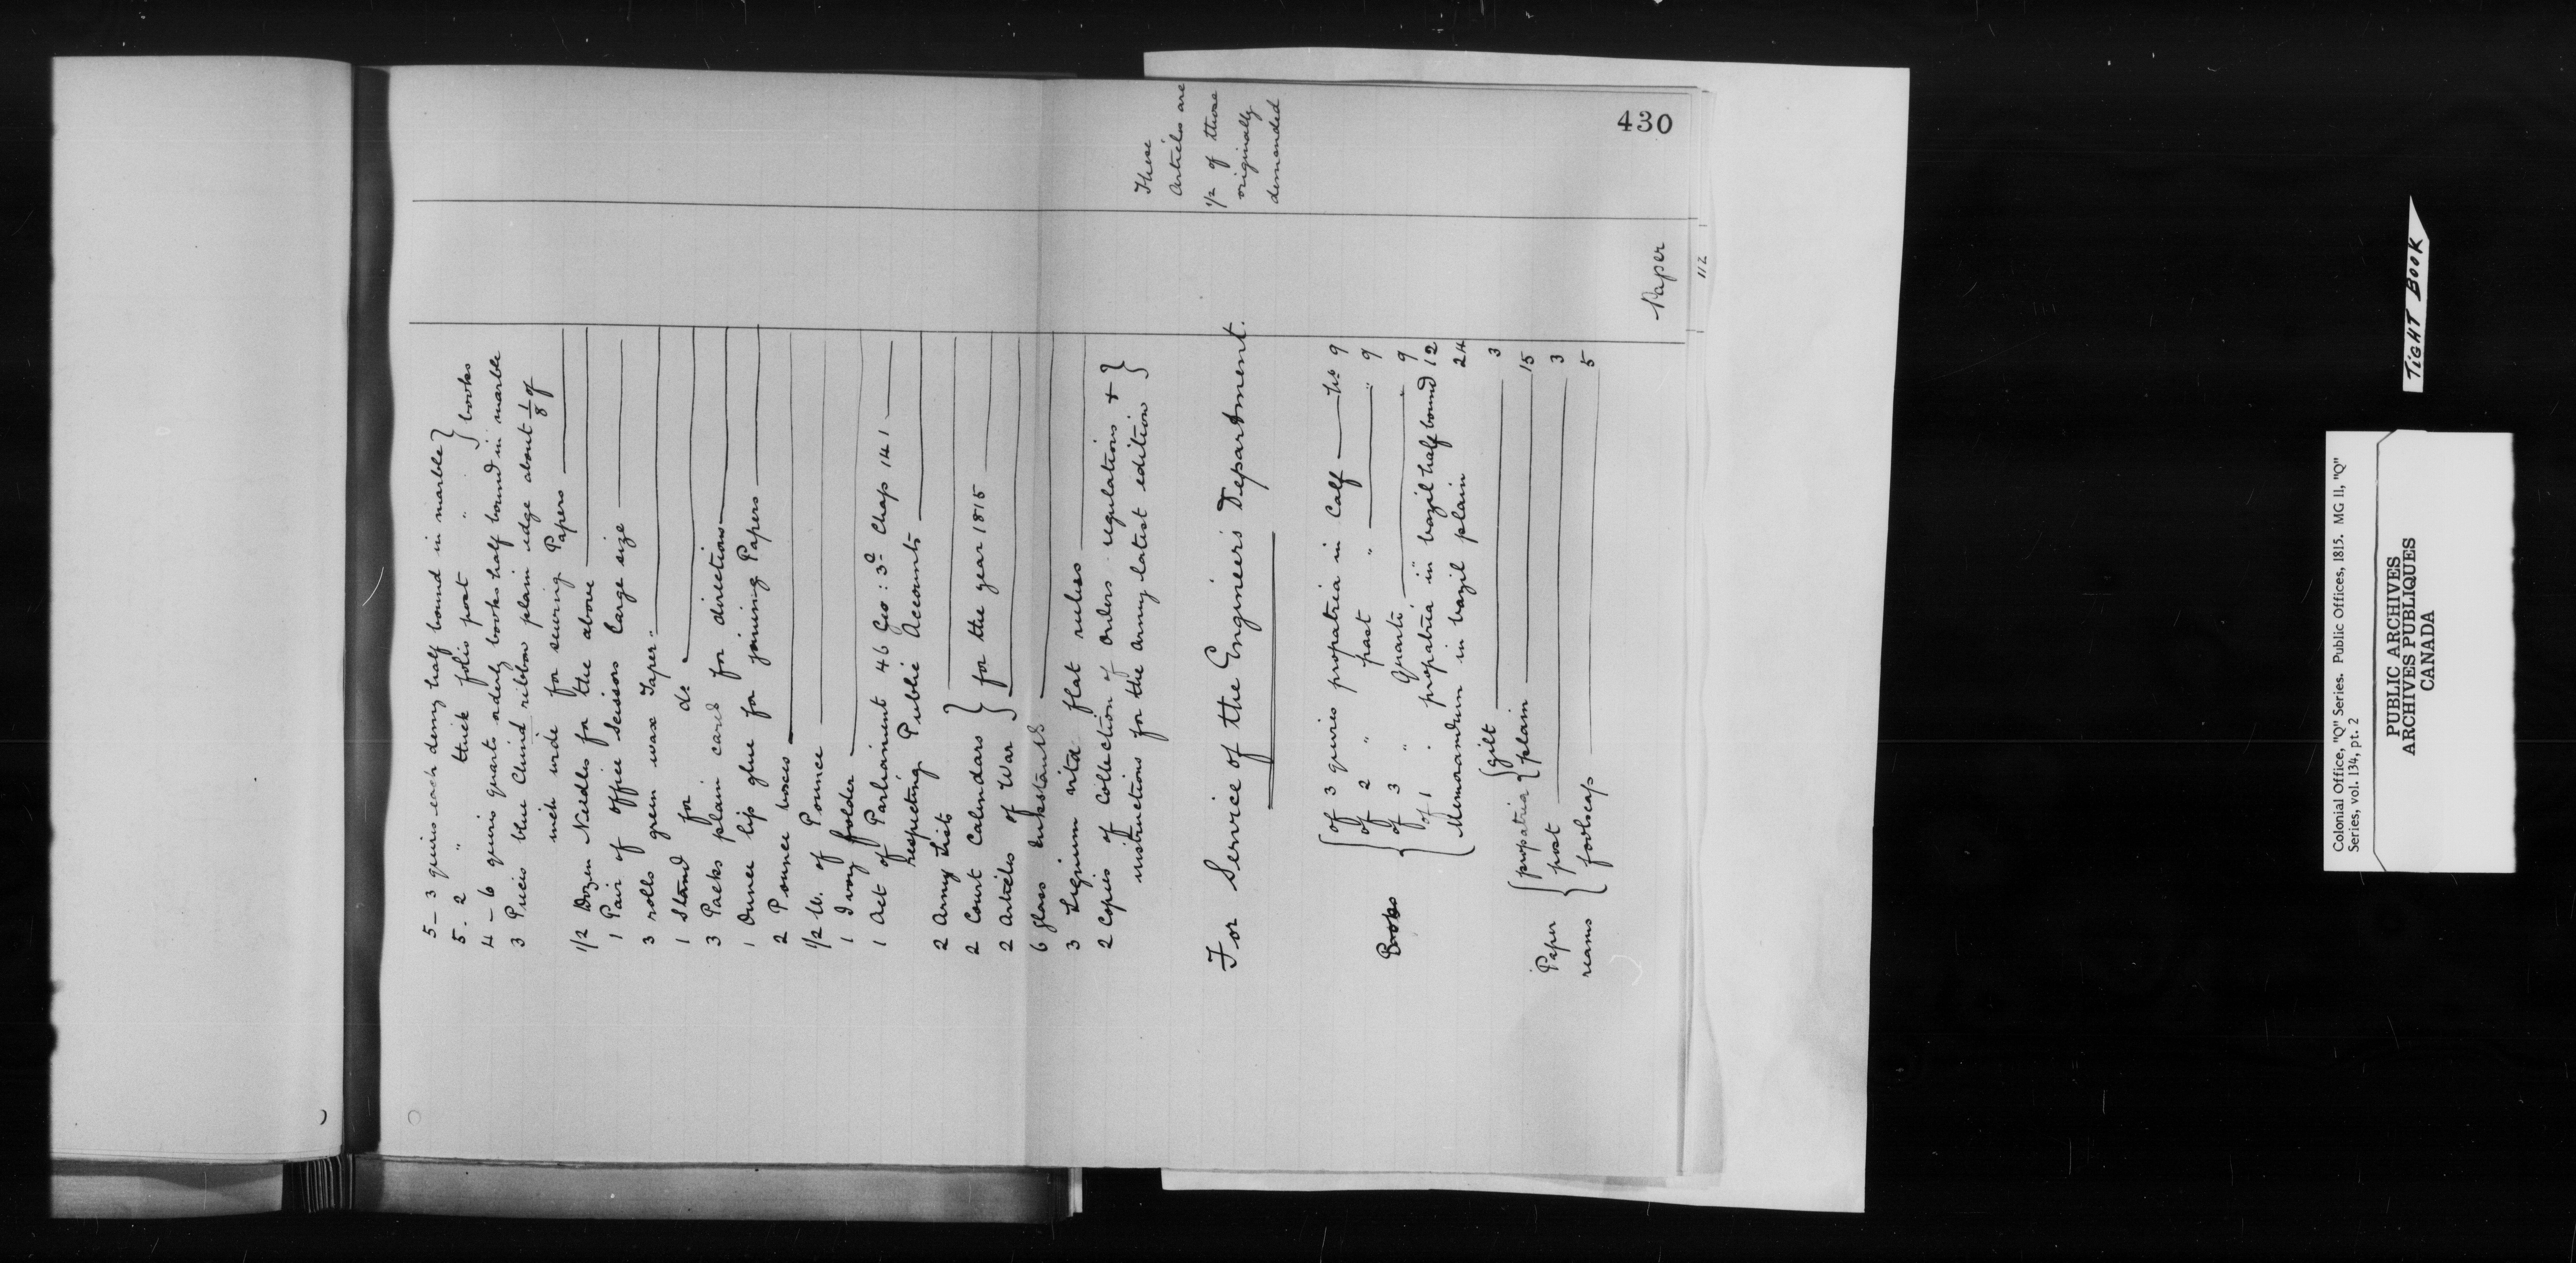 430
5 - 3 quires each demy half bound in marble } books
5 . 2 " thick folio post " . " } books
4 - 6 quires quarto aderly books half bound in marble
3 Pieces blue China ribbon plain edge about 1/8 of
inch wide for sewing Papers
1/2 Dozen Needles for the above
1 Pair of office Scissors large size
3 rolls green wax Taper
1 Stand for do
3 Packs plain cards for directions
1 Ounce lip glue for joining Papers
2 Pounce boxes
1/2 lb. of Pounce
1 Ivory folder
1 Act of Parliament 46 Geo: 3d Chap 141
respecting Public Accounts
2 Army Lists
2 Court Calendars } for the year 1815
2 Articles of War }
6 glass Inkstands
3 Lignum vitae flat rulers
2 Copies of Collection of Orders regulations + }
instructions for the Army latest edition }
These
Articles are
1/2 of those
originally
demanded
For Service of the Engineers Department.
Books
{ of 3 quires propatria in Calf — No 9
{ of 2 " post " — " 9
{ of 3 " Quarto — 9
{ of 1 . propatria in bazil half bound 12
{ Memorandum in bazil plain 24
Paper reams
{ propatria { gilt — 3
{ plain — 15
{ post — 3
{ foolscap — 5
Paper
112
TIGHT BOOK
Colonial Office, "Q" Series. Public Offices, 1815. MG 11, "Q"
Series, vol. 134, pt. 2
PUBLIC ARCHIVES
ARCHIVES PUBLIQUES
CANADA